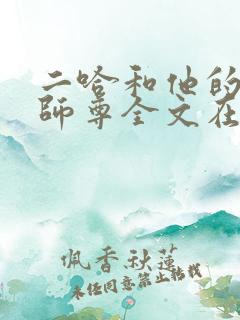 二哈和他的
師尊全文在
佩香秋蓮
未经同意禁止转载